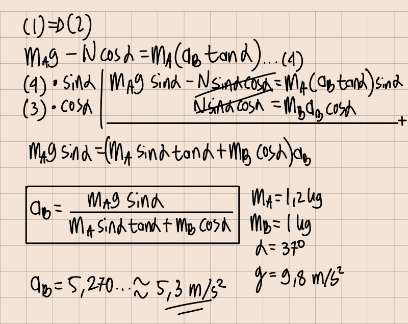 (1)⇒(2)
m_A g - N cosα = m_A(a_B tanα)...(4)
(4)·sinα | m_A g sinα - N sinα cosα = m_A(a_B tanα) sinα
(3)·cosα | N sinα cosα = m_B a_B cosα
+
m_A g sinα = (m_A sinα tanα + m_B cosα) a_B
a_B = m_A g sinα / (m_A sinα tanα + m_B cosα)
m_A = 1,2 kg
m_B = 1 kg
α = 37°
g = 9,8 m/s²
a_B = 5,270... ≈ 5,3 m/s²